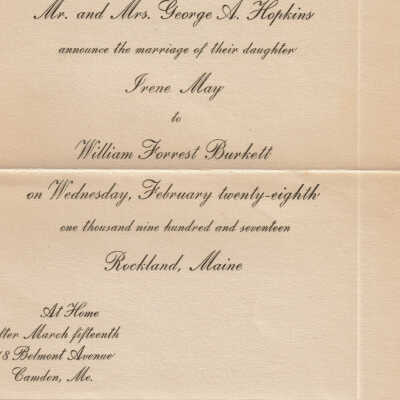 Mr. and Mrs. George A. Hopkins
announce the marriage of their daughter
Irene May
to
William Forrest Burkett
on Wednesday, February twenty-eighth
one thousand nine hundred and seventeen
Rockland, Maine
At Home
after March fifteenth
8 Belmont Avenue
Camden, Me.